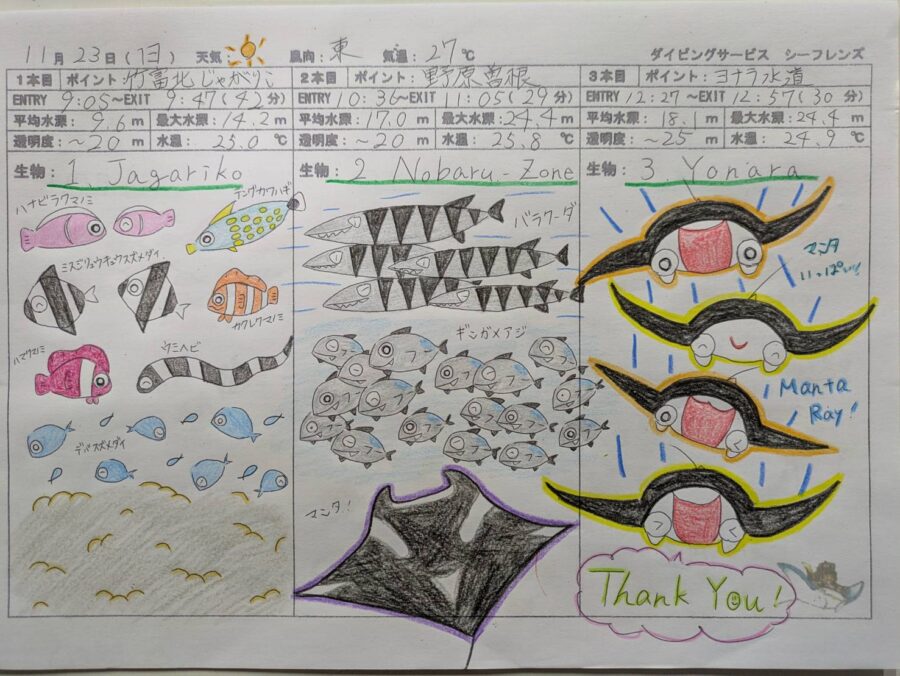 11月23日(日) 天気: 風向: 東 気温: 27℃ ダイビングサービス シーフレンズ
1本目 ポイント: 竹富北じゃがりこ
ENTRY 9:05~EXIT 9:47(42分)
平均水深: 9.6m 最大水深: 14.2m
透明度: ~20m 水温: 25.0℃
生物: 1. Jagariko
ハナビラクマノミ
テングカワハギ
ミスジリュウキュウスズメダイ
カクレクマノミ
ハマクマノミ
ウミヘビ
デバスズメダイ
2本目 ポイント: 野原曽根
ENTRY 10:36~EXIT 11:05(29分)
平均水深: 17.0m 最大水深: 24.4m
透明度: ~20m 水温: 25.8℃
生物: 2. Nobaru-Zone
バラクーダ
ギンガメアジ
マンタ!
3本目 ポイント: ヨナラ水道
ENTRY 12:27~EXIT 12:57(30分)
平均水深: 18.1m 最大水深: 24.4m
透明度: ~25m 水温: 24.9℃
生物: 3. Yonara
マンタ
いっぱい!!
Manta
Ray!
Thank You!